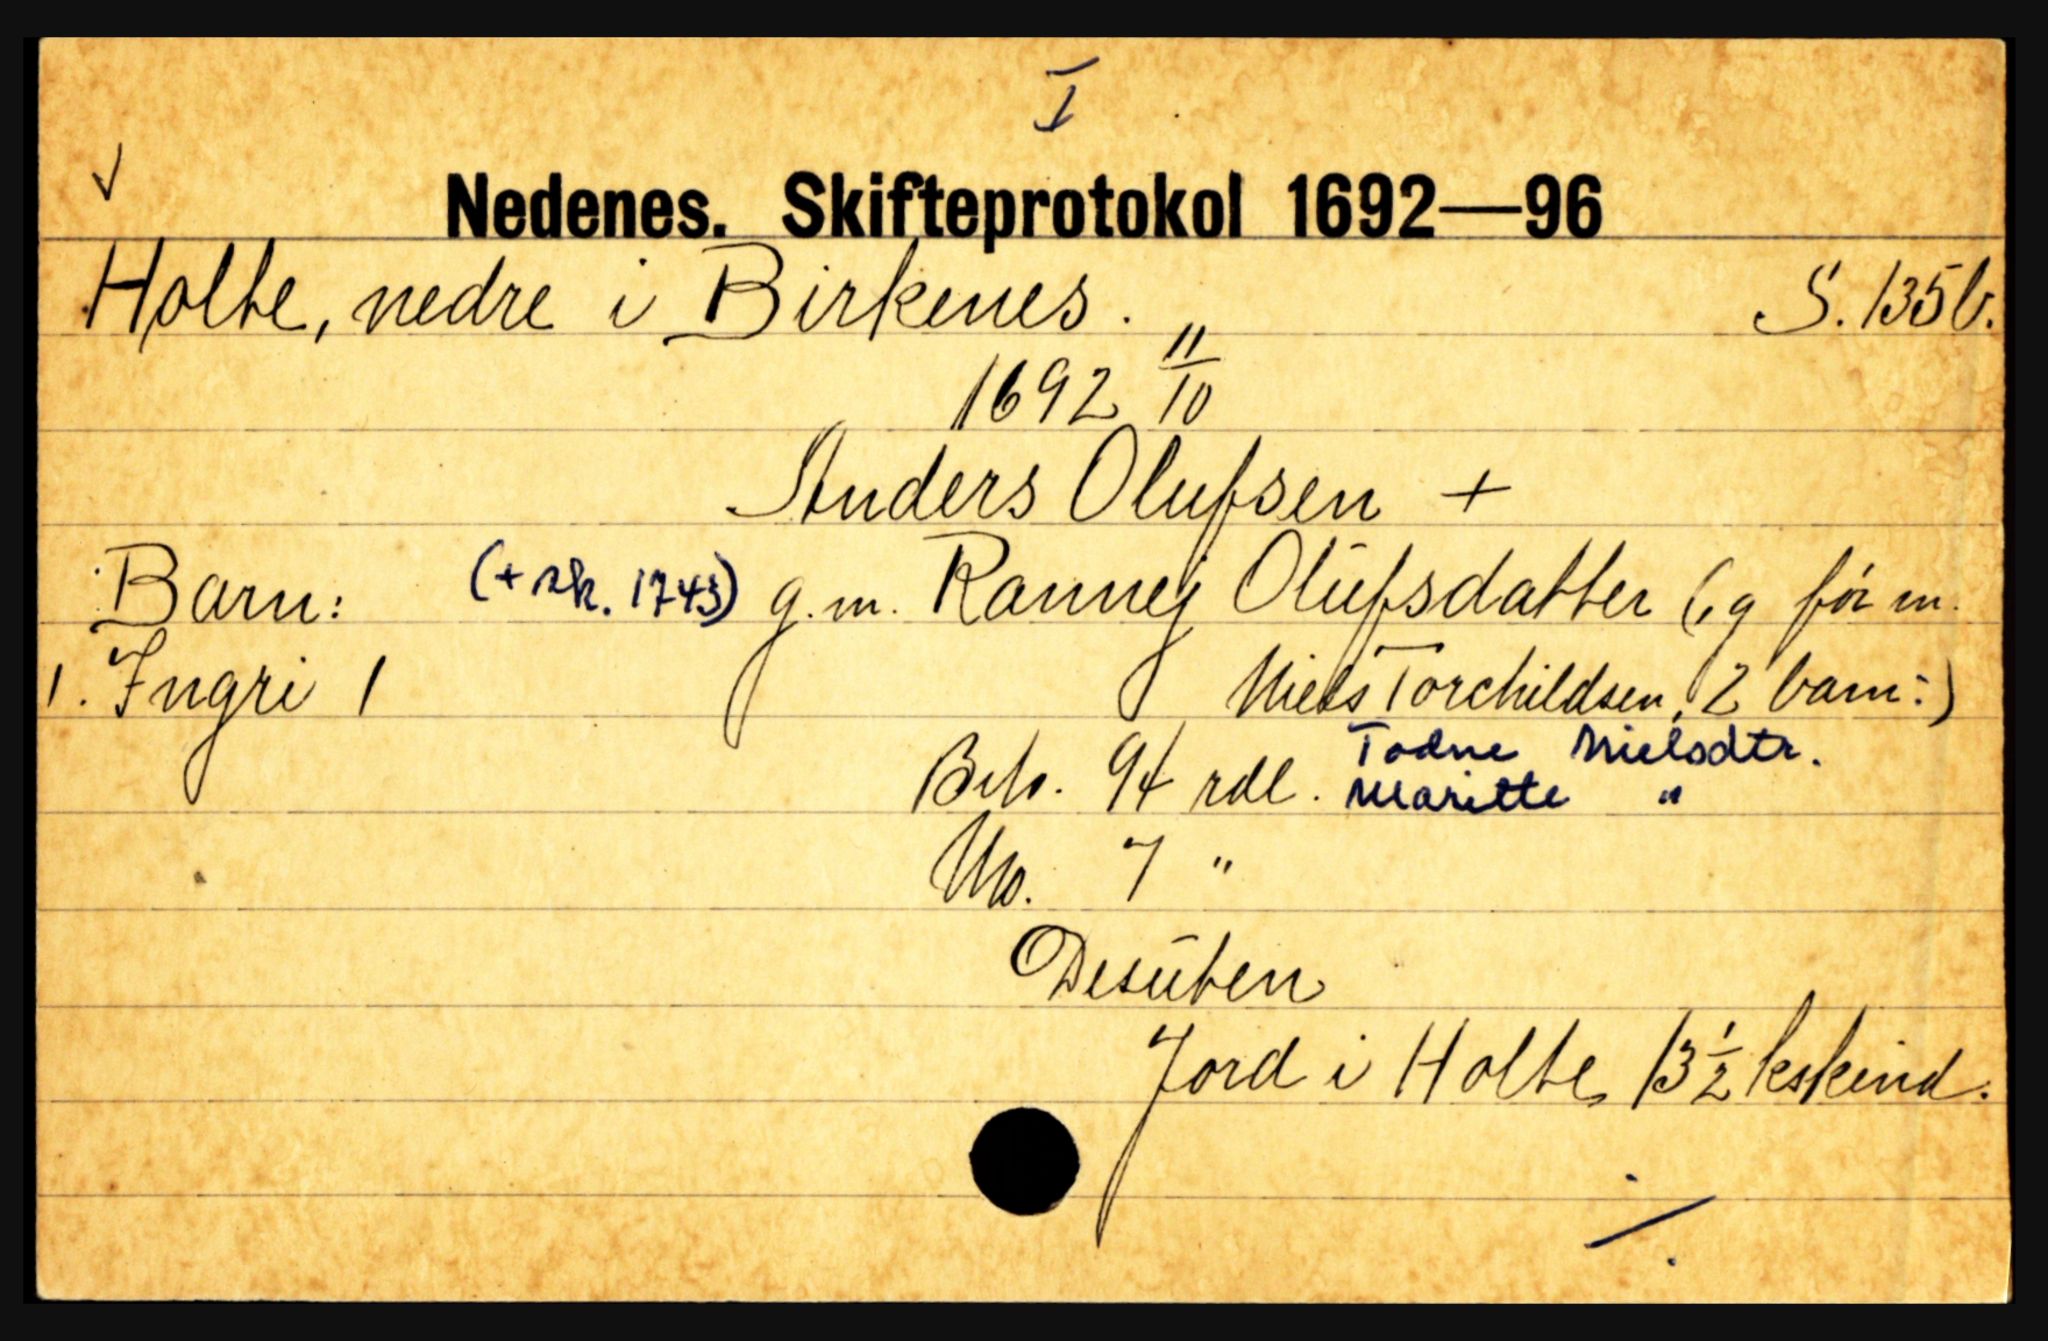 I
Nedenes. Skifteprotokol 1692—96
Holte, nedre i Birkenes. S. 135b.
1692 11/10
Anders Olufsen +
Barn: (+ sk. 1743) g.m. Rannej Olufsdatter (, g før m.
1. Ingri 1 Niels Torchildsen, 2 barn:)
Brto. 94 rdl. Todne Nielsdtr.
Maritte "
No. 7 "
Desuten
Jord i Holte 13½ kskind.